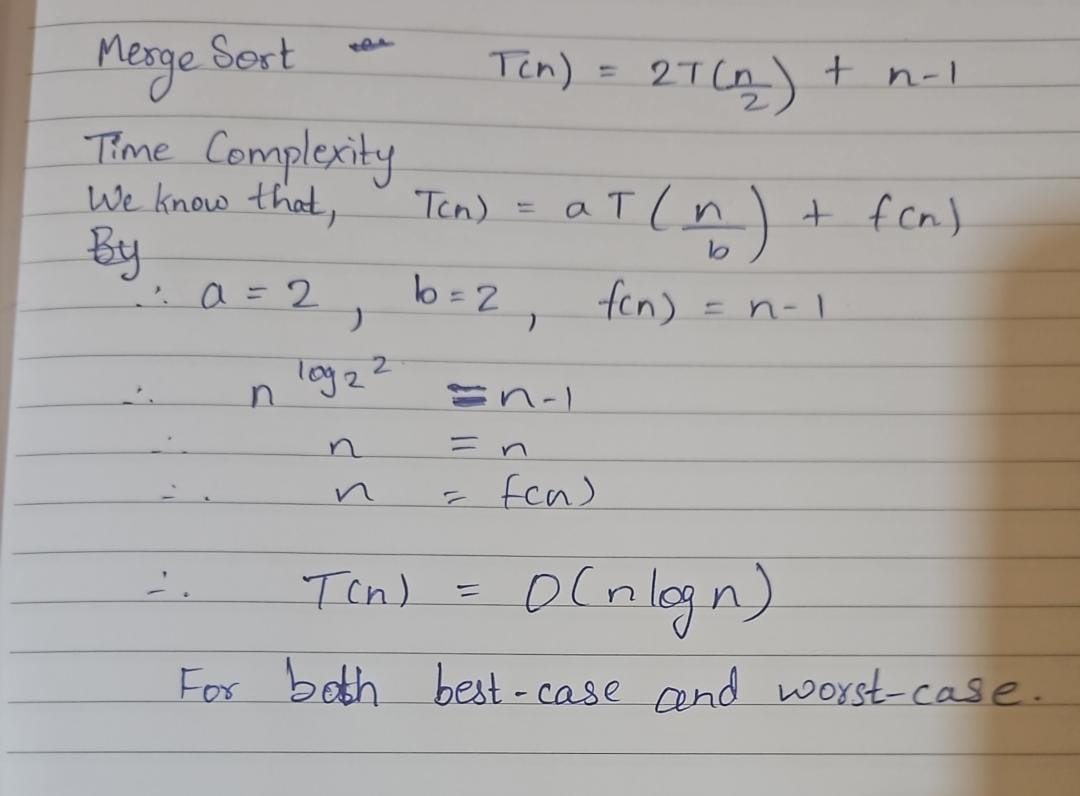 Merge Sort T(n) = 2T(n/2) + n-1
Time Complexity
We know that, T(n) = a T(n/b) + f(n)
By
∴ a = 2, b = 2, f(n) = n-1
∴ n^log₂2 = n-1
∴ n = n
∴ n = f(n)
∴ T(n) = O(n log n)
For both best-case and worst-case.